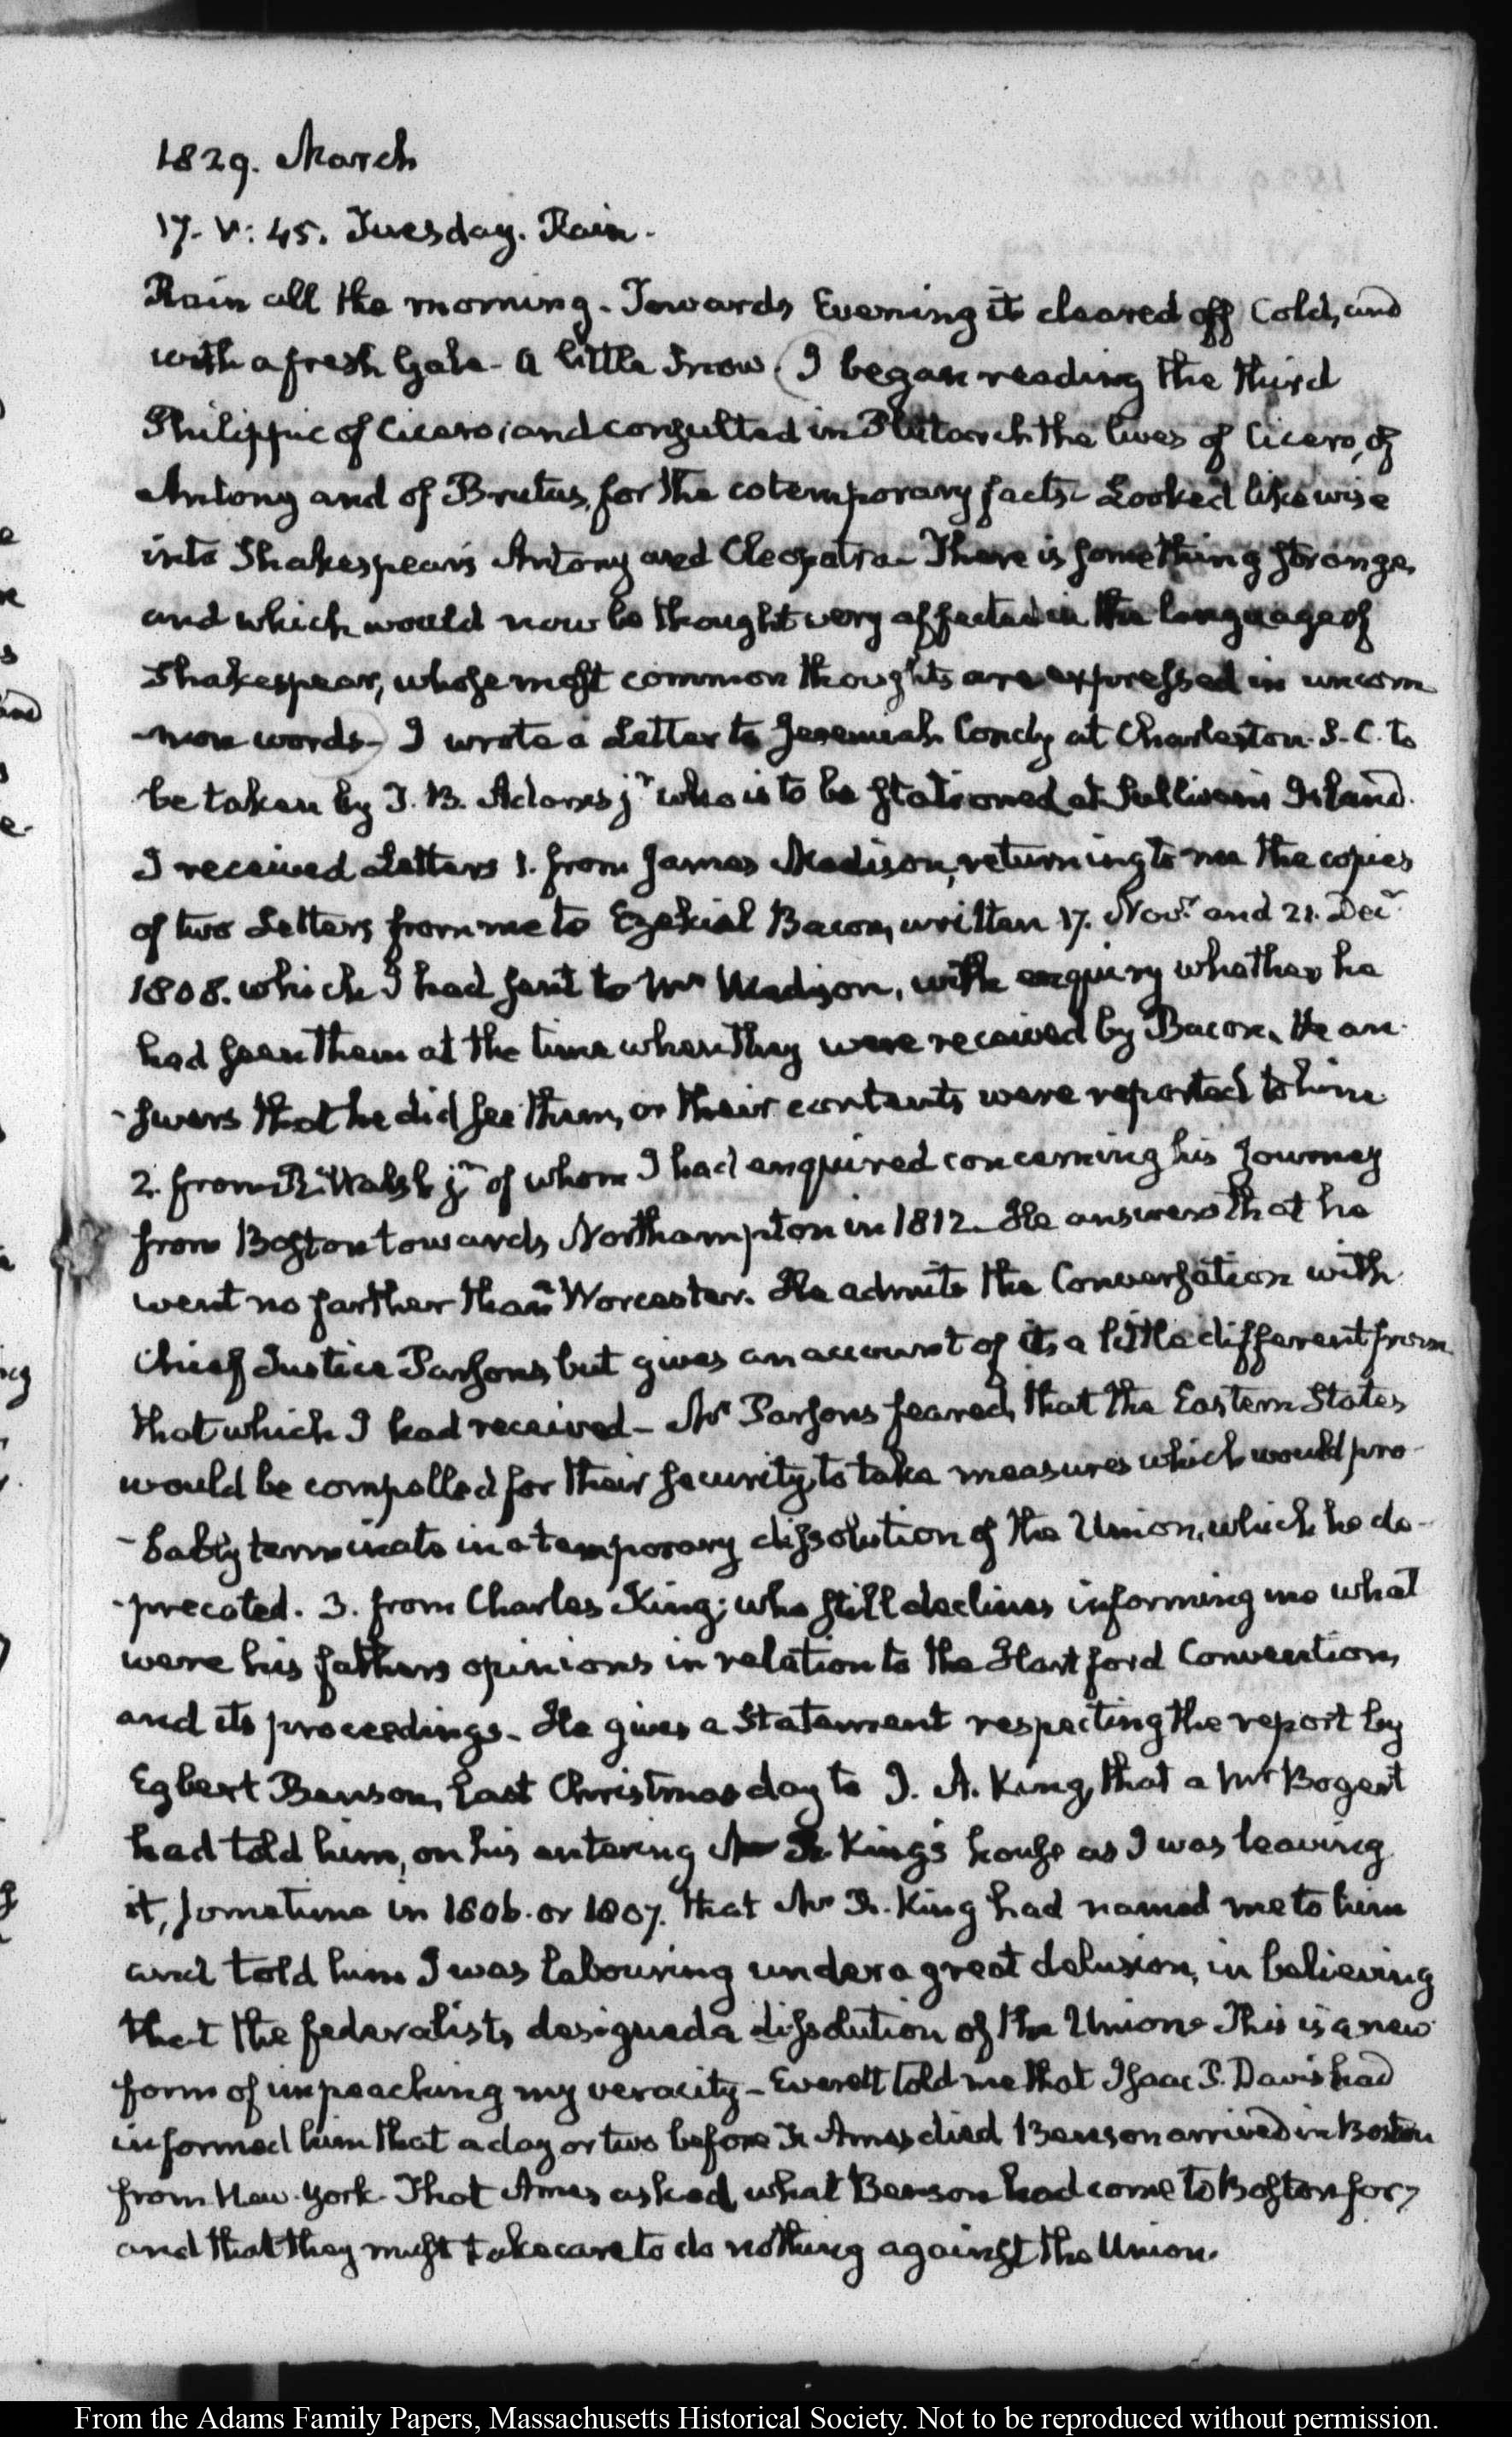 1829. March
17. V: 45. Tuesday. Rain.
Rain all the morning. Towards Evening it cleared off Cold, and
with a fresh Gale - a little Snow. (I began reading the third
Philippic of Cicero, and consulted in Plutarch the lives of Cicero, of
Antony and of Brutus, for the cotemporary facts. Looked likewise
into Shakespear's Antony and Cleopatra - There is something strange,
and which would now be thought very affected in the language of
Shakespear, whose most common thoughts are expressed in uncom
-mon words-) I wrote a Letter to Jeremiah Condy at Charleston. S. C. to
be taken by T. B. Adams jr. who is to be stationed at Sullivan's Island.
I received Letters 1. from James Madison, returning to me the copies
of two Letters from me to Ezekiel Bacon, written 17. Novr. and 21. Decr.
1808. which I had sent to Mr Madison, with enquiry whether he
had seen them at the time when they were received by Bacon. He an-
-swers that he did see them, or their contents were reported to him
2. from R. Walsh jr. of whom I had enquired concerning his Journey
from Boston towards Northampton in 1812. He answers that he
went no farther than Worcester. He admits the Conversation with
Chief Justice Parsons but gives an account of it, a little different from
that which I had received - Mr Parsons feared, that the Eastern States
would be compelled for their security, to take measures which would pro-
-bably terminate in a temporary dissolution of the Union, which he de-
-precated. 3. from Charles King; who still declines informing me what
were his father's opinions in relation to the Hartford Convention,
and its proceedings. He gives a Statement respecting the report by
Egbert Benson, last Christmas day to J. A. King, that a Mr Bogert
had told him, on his entering Mr R. King's house as I was leaving
it, sometime in 1806. or 1807. that Mr R. King had named me to him
and told him I was labouring under a great delusion, in believing
that the federalists, designed a dissolution of the Union. This is a new
form of impeaching my veracity - Everett told me that Isaac P. Davis had
informed him that a day or two before Fr. Ames died Benson arrived in Boston
from New-York. That Ames asked, what Benson had come to Boston for,
and that they must take care to do nothing against the Union.
From the Adams Family Papers, Massachusetts Historical Society. Not to be reproduced without permission.